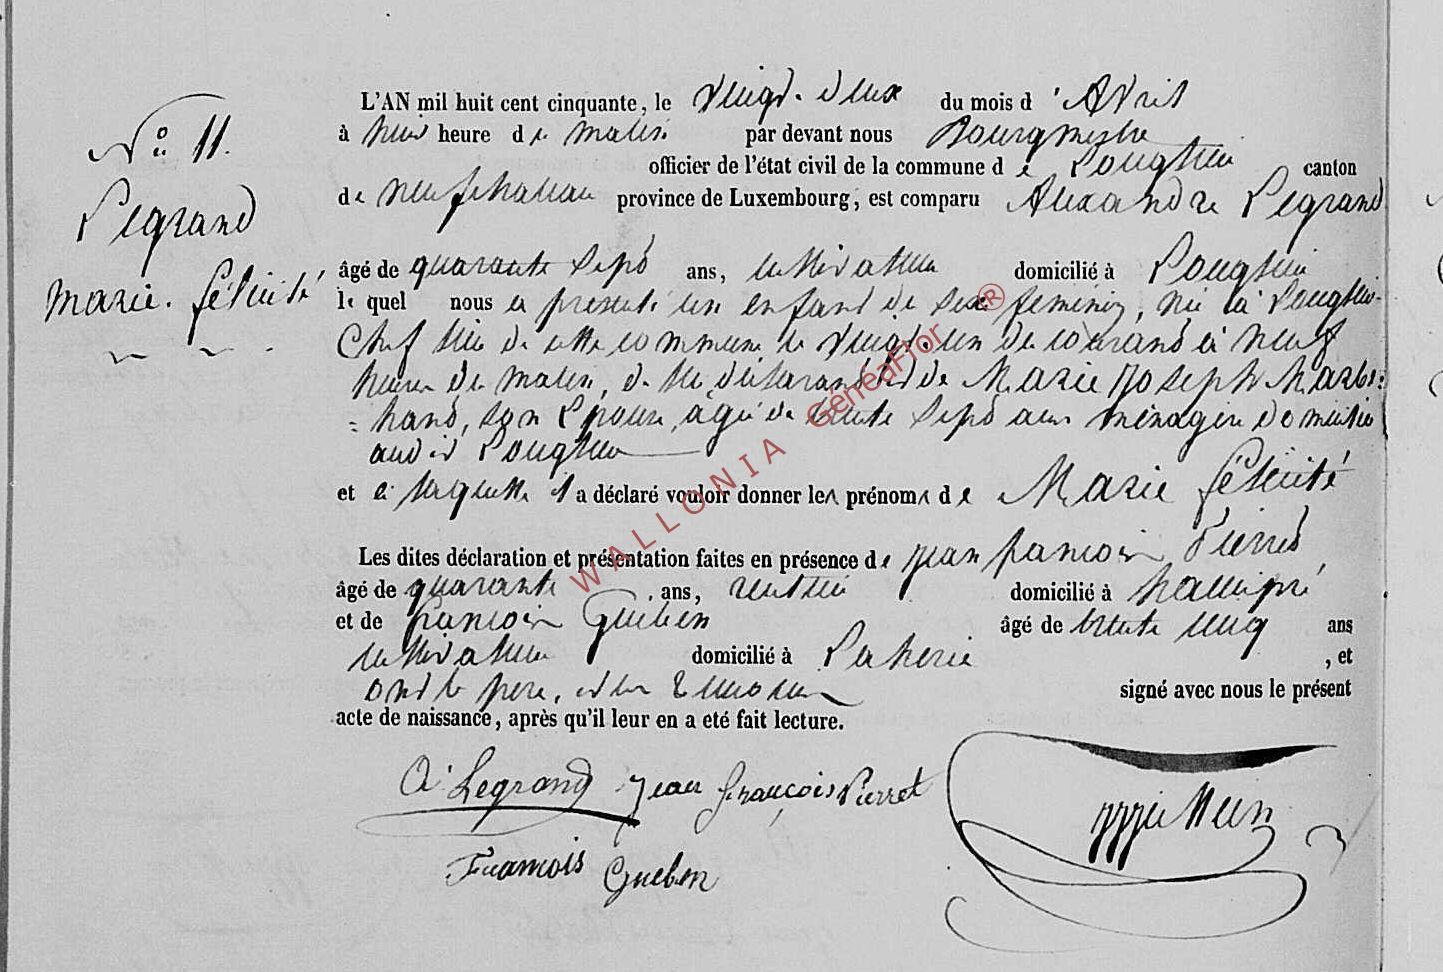 N° 11.
Legrand
Marie. félicité
L'AN mil huit cent cinquante, le vingt-deux du mois d'Avril
à neuf heure du matin par devant nous Bourgmestre
officier de l'état civil de la commune de Longlier canton
de neufchateau province de Luxembourg, est comparu Alexandre Legrand
âgé de quarante sept ans, cultivateur domicilié à Longlier
lequel nous a présenté un enfant de sexe féminin, née à Longlier
chef lieu de cette commune le vingt-un du courant à neuf
heures du matin, de lui déclarant et de Marie Joseph
son Epouse, agée de trente sept ans ménagère
audit Longlier
et à laquelle il a déclaré vouloir donner les prénoms de Marie félicité
Les dites déclaration et présentation faites en présence de jean francois Pierret
âgé de quarante ans, rentier domicilié à hamipré
et de francois Gueben âgé de trente cinq ans
cultivateur domicilié à Laherie , et
ont le père, et les témoins signé avec nous le présent
acte de naissance, après qu'il leur en a eté fait lecture.
A. Legrand jean françois Pierret
Francois Gueben
WALLONIA GénéaFfor ®